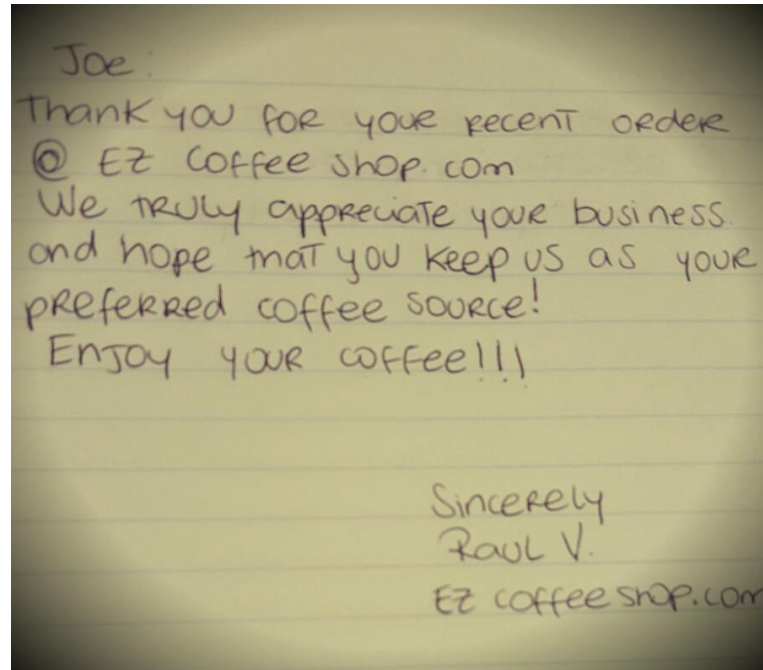 Joe:
Thank you for your recent order
@ EZ Coffee Shop.com
We truly appreciate your business
and hope that you keep us as your
preferred coffee source!
Enjoy your coffee!!!
Sincerely
Raul V.
EZ coffee shop.com